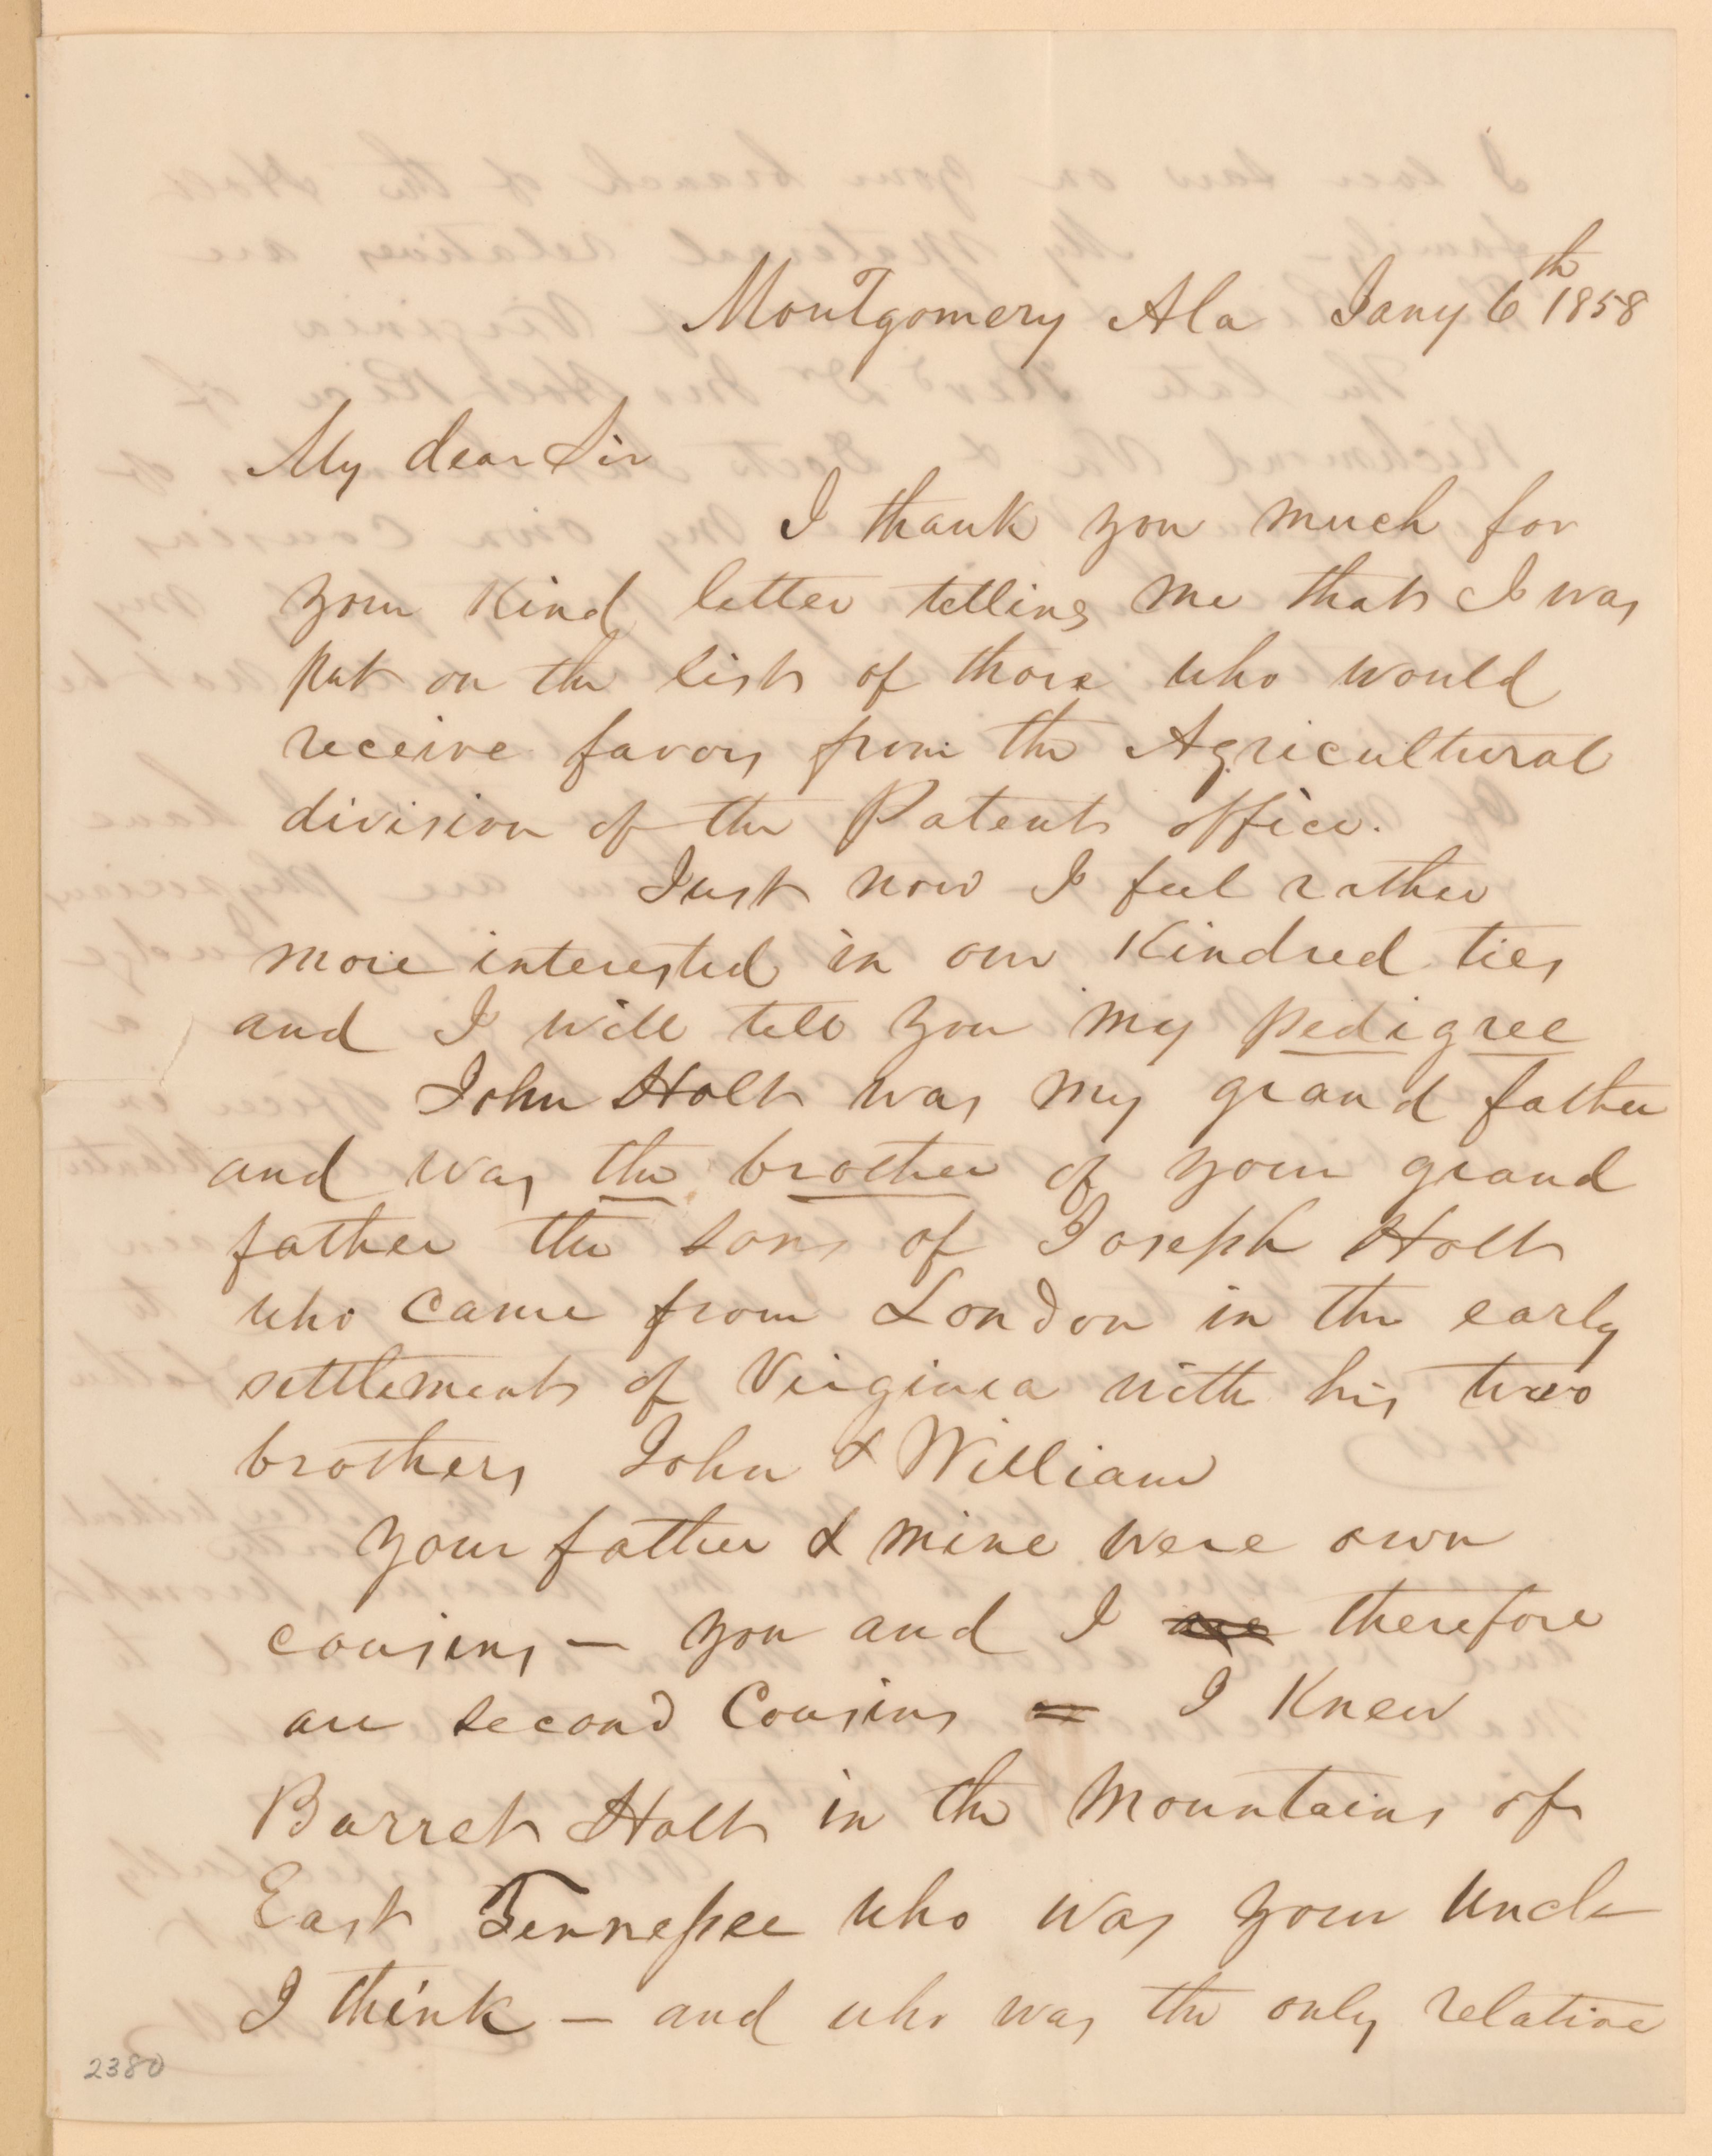 Montgomery Ala Jany 6th 1858
My dear Sir
I thank you much for
your kind letter telling me that I was
put on the list of those who would
receive favors from the Agricultural
division of the Patent office.
Just now I feel rather
more interested in our Kindred ties
and I will tell you my pedigree
John Holt was my grand father
and was the brother of your grand
father the sons of Joseph Holt
who came from London in the early
settlement of Virginia with his two
brothers John & William
Your father & mine were own
cousins — you and I are therefore
are second Cousins = I Knew
Barret Holt in the Mountains of
East Tennessee who was your Uncle
I think — and who was the only relative
2380